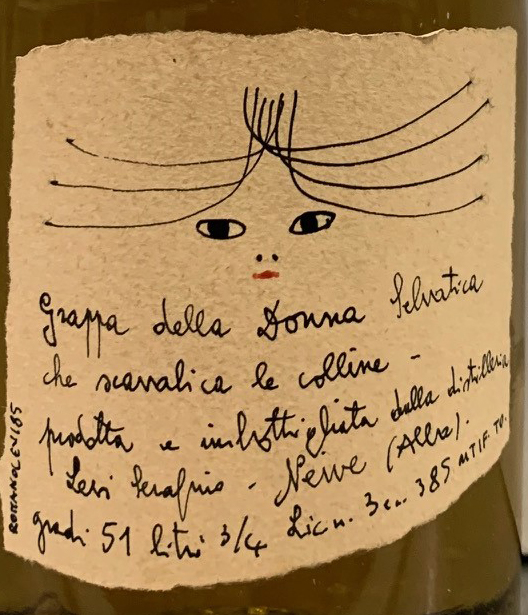 Grappa della Donna Selvatica
che scavalca le colline -
prodotta e imbottigliata dalla distilleria
Levi Serafino - Neive (Alba).
gradi 51 litri 3/4 Lic n. 3 385 M.T.IF. TO.
ROMANO LEVI 85